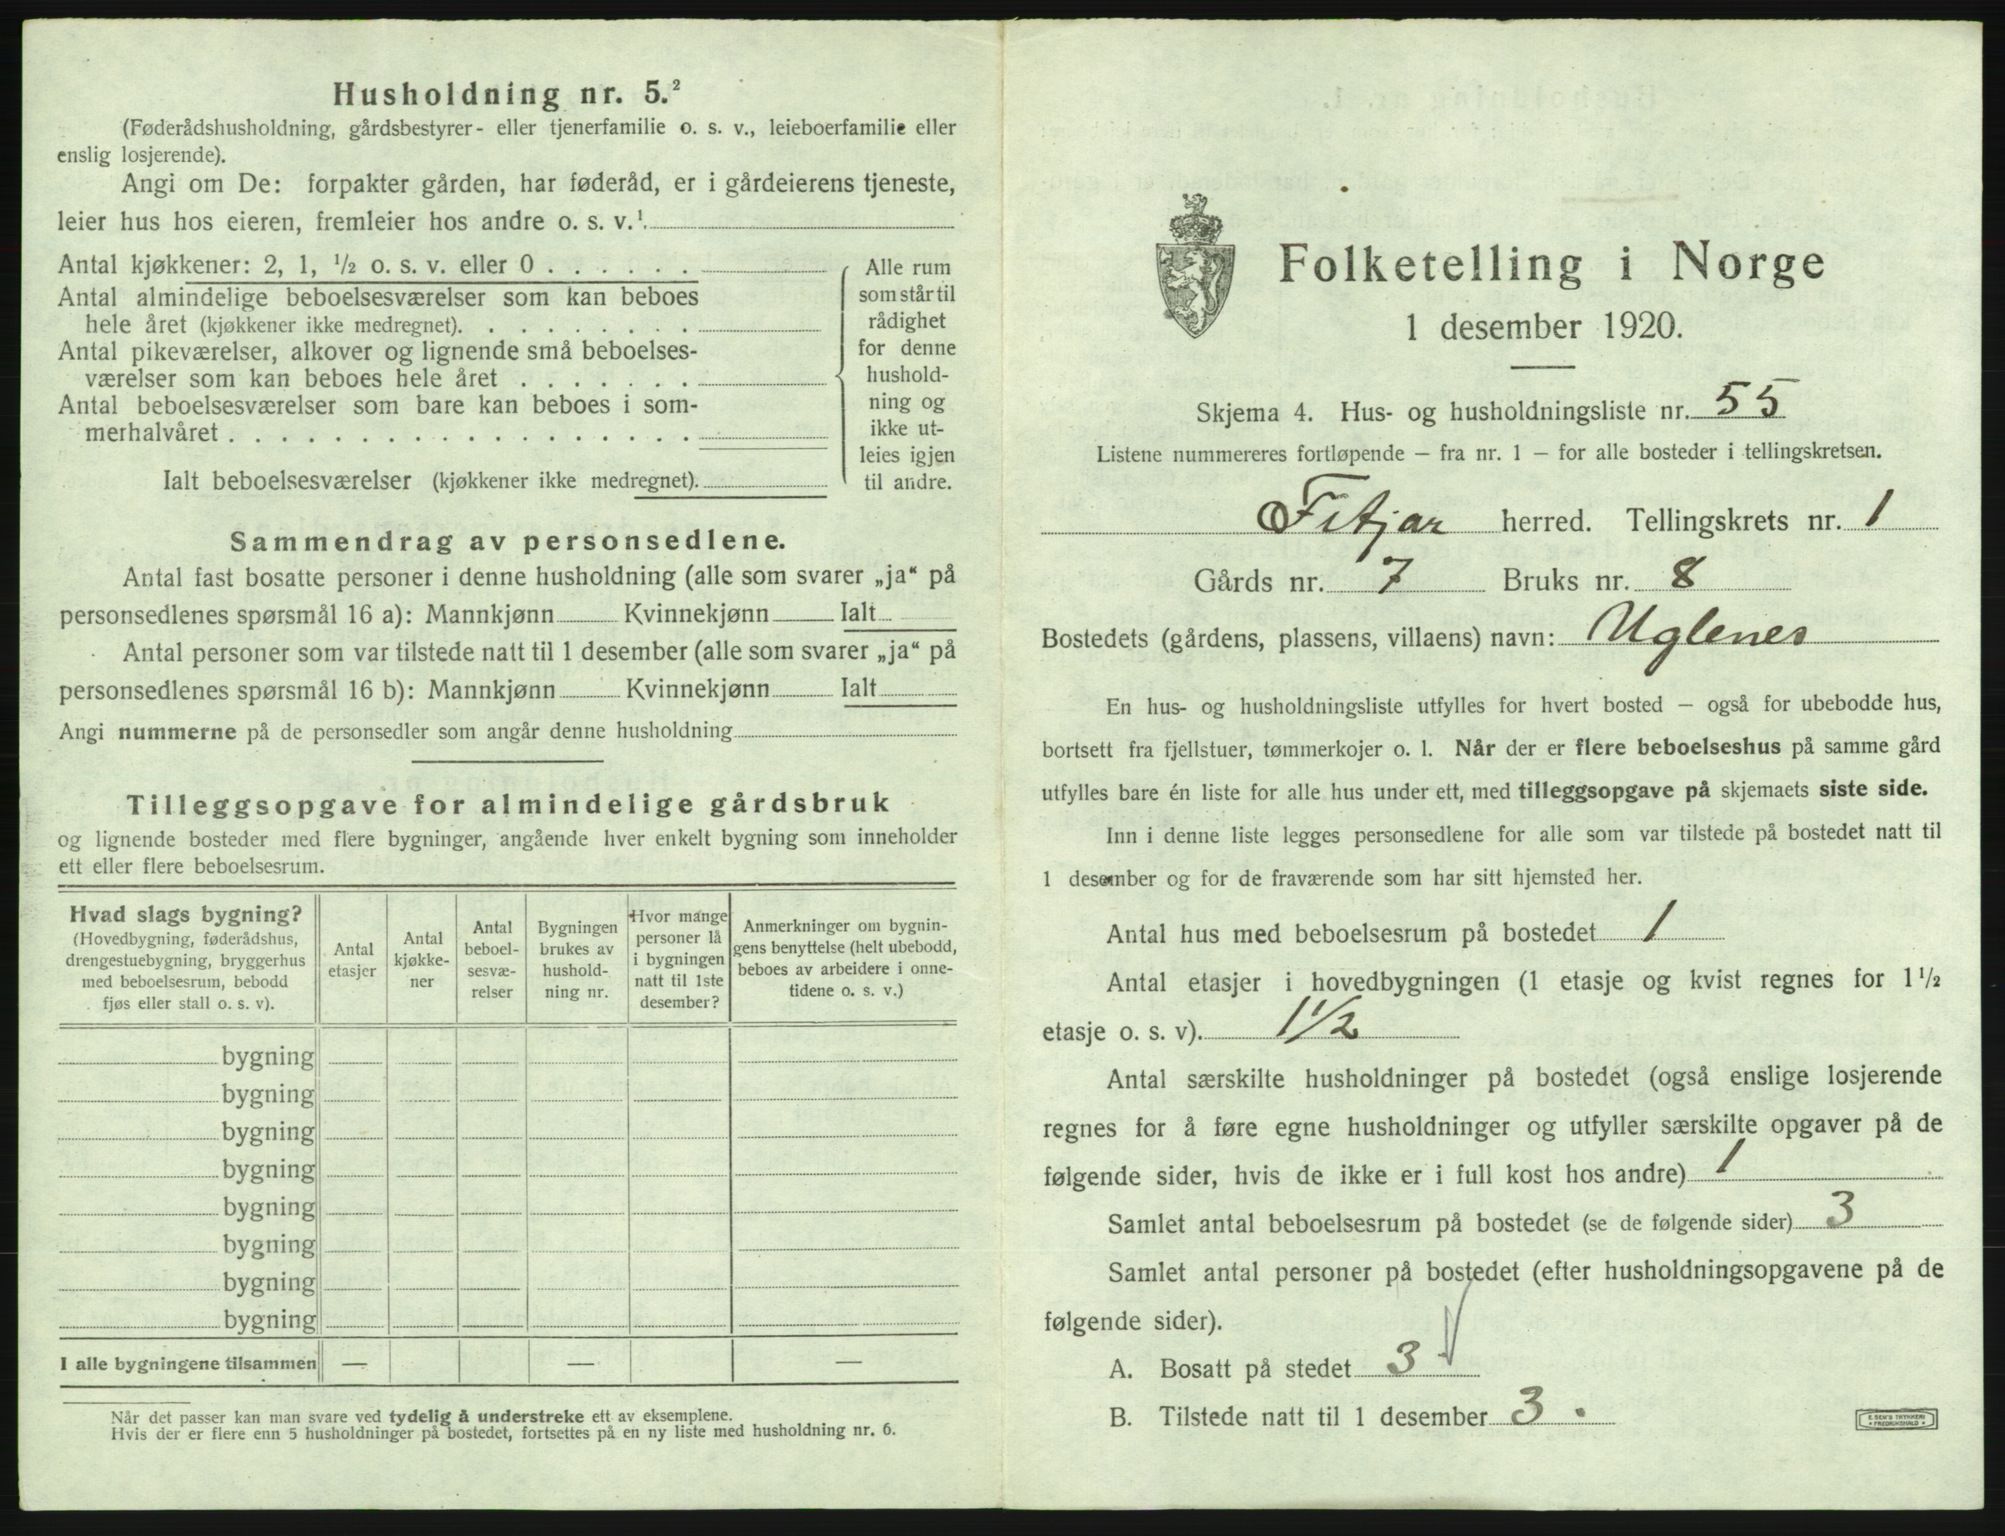 Husholdning nr. 5.²
(Føderådshusholdning, gårdsbestyrer- eller tjenerfamilie o. s. v., leieboerfamilie eller
enslig losjerende).
Angi om De: forpakter gården, har føderåd, er i gårdeierens tjeneste,
leier hus hos eieren, fremleier hos andre o. s. v.¹.
Antal kjøkkener: 2, 1, ½ o. s. v. eller 0 . . . . . .
Antal almindelige beboelsesværelser som kan beboes
hele året (kjøkkener ikke medregnet). . . . . . . . .
Antal pikeværelser, alkover og lignende små beboelses-
værelser som kan beboes hele året . . . . . . .
Antal beboelsesværelser som bare kan beboes i som-
merhalvåret . . . . . . . . . . . . . . . . . .
Ialt beboelsesværelser (kjøkkener ikke medregnet).
Alle rum
som står til
rådighet
for denne
hushold-
ning og
ikke ut-
leies igjen
til andre.
Sammendrag av personsedlene.
Antal fast bosatte personer i denne husholdning (alle som svarer „ja“ på
personsedlenes spørsmål 16 a): Mannkjønn Kvinnekjønn Ialt
Antal personer som var tilstede natt til 1 desember (alle som svarer „ja“ på
personsedlenes spørsmål 16 b): Mannkjønn Kvinnekjønn Ialt
Angi nummerne på de personsedler som angår denne husholdning
Tilleggsopgave for almindelige gårdsbruk
og lignende bosteder med flere bygninger, angående hver enkelt bygning som inneholder
ett eller flere beboelsesrum.
Hvad slags bygning?
(Hovedbygning, føderådshus,
drengestuebygning, bryggerhus
med beboelsesrum, bebodd
fjøs eller stall o. s. v).
Antal
etasjer
Antal
kjøkke-
ner
Antal
beboel-
sesvæ-
relser
Bygningen
brukes av
hushold-
ning nr.
Hvor mange
personer lå
i bygningen
natt til 1ste
desember?
Anmerkninger om bygnin-
gens benyttelse (helt ubebodd,
beboes av arbeidere i onne-
tidene o. s. v.)
bygning
bygning
bygning
bygning
bygning
bygning
bygning
bygning
I alle bygningene tilsammen — — —
Når det passer kan man svare ved tydelig å understreke ett av eksemplene.
Hvis der er flere enn 5 husholdninger på bostedet, fortsettes på en ny liste med husholdning nr. 6.
Folketelling i Norge
1 desember 1920.
Skjema 4. Hus- og husholdningsliste nr. 55
Listene nummereres fortløpende — fra nr. 1 — for alle bosteder i tellingskretsen.
Fitjar herred. Tellingskrets nr. 1
Gårds nr. 7 Bruks nr. 8
Bostedets (gårdens, plassens, villaens) navn: Uglenes
En hus- og husholdningsliste utfylles for hvert bosted — også for ubebodde hus,
bortsett fra fjellstuer, tømmerkojer o. l. Når der er flere beboelseshus på samme gård
utfylles bare én liste for alle hus under ett, med tilleggsopgave på skjemaets siste side.
Inn i denne liste legges personsedlene for alle som var tilstede på bostedet natt til
1 desember og for de fraværende som har sitt hjemsted her.
Antal hus med beboelsesrum på bostedet 1
Antal etasjer i hovedbygningen (1 etasje og kvist regnes for 1½
etasje o. s. v). 1½
Antal særskilte husholdninger på bostedet (også enslige losjerende
regnes for å føre egne husholdninger og utfyller særskilte opgaver på de
følgende sider, hvis de ikke er i full kost hos andre) 1
Samlet antal beboelsesrum på bostedet (se de følgende sider) 3
Samlet antal personer på bostedet (efter husholdningsopgavene på de
følgende sider).
A. Bosatt på stedet 3
B. Tilstede natt til 1 desember 3.
E. SEM'S TRYKKERI
FREDRIKSHALD